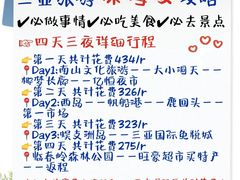 三亚旅游保姆级攻略
✔必做事情✔必吃美食✔必去景点
四天三夜详细行程
第一天 共计花费434/r
Day1:南山文化旅游——大小洞天——椰梦长廊——亿恒夜市
第二天 共计花费326/r
Day2:西岛——帆船港——鹿回头——第一市场
第三天 共计花费323/r
Day3:蜈支洲岛——三亚国际免税城
第四天 共计花费275/r
临春岭森林公园——旺豪超市买特产——返程